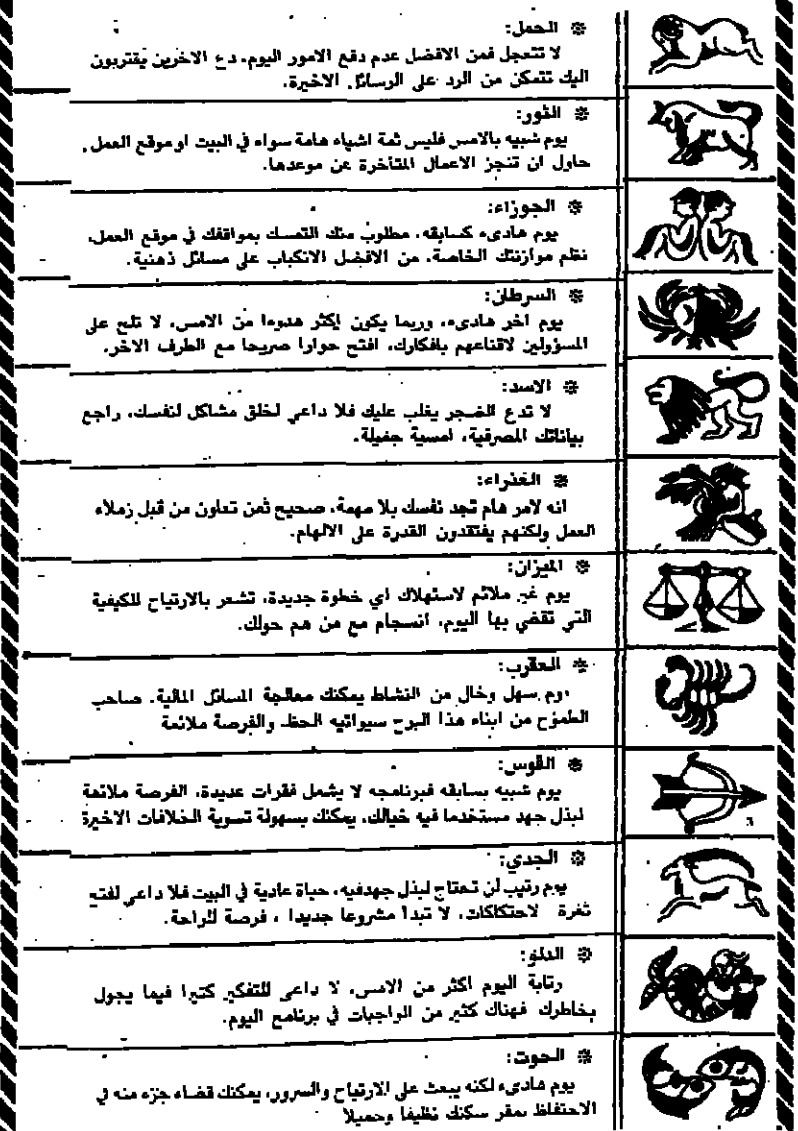 ❊ الحمل:
لا تتعجل فمن الافضل عدم دفع الامور اليوم، دع الاخرين يقتربون
اليك تتمكن من الرد على الرسائل الاخيرة.
❊ الثور:
يوم شبيه بالامس فليس ثمة اشياء هامة سواء في البيت او موقع العمل.
حاول ان تنجز الاعمال المتأخرة عن موعدها.
❊ الجوزاء:
يوم هادىء كسابقه، مطلوب منك التمسك بمواقفك في موقع العمل،
نظم موازنتك الخاصة، من الافضل الانكباب على مسائل ذهنية.
❊ السرطان:
يوم اخر هادىء، وربما يكون اكثر هدوءا من الامس، لا تلح على
المسؤولين لاقناعهم بافكارك، افتح حوارا صريحا مع الطرف الاخر.
❊ الاسد:
لا تدع الضجر يغلب عليك فلا داعي لخلق مشاكل لنفسك، راجع
بياناتك المصرفية، امسية جميلة.
❊ العذراء:
انه لامر هام تجد نفسك بلا مهمة، صحيح ثمن تعاون من قبل زملاء
العمل ولكنهم يفتقدون القدرة على الالهام.
❊ الميزان:
يوم غير ملائم لاستهلاك اي خطوة جديدة، تشعر بالارتياح للكيفية
التي تقضي بها اليوم، انسجام مع من هم حولك.
❊ العقرب:
يوم سهل وخال من النشاط يمكنك معالجة المسائل المالية. صاحب
الطموح من ابناء هذا البرج سيواتيه الحظ والفرصة ملائمة
❊ القوس:
يوم شبيه بسابقه فبرنامجه لا يشمل فقرات عديدة، الفرصة ملائمة
لبذل جهد مستخدما فيه خيالك، يمكنك بسهولة تسوية الخلافات الاخيرة
❊ الجدي:
يوم رتيب لن تحتاج لبذل جهدفيه، حياة عادية في البيت فلا داعي لفتح
ثغرة لاحتكاكات، لا تبدأ مشروعا جديدا ، فرصة للراحة.
❊ الدلو:
رتابة اليوم اكثر من الامس، لا داعي للتفكير كثيرا فيما يجول
بخاطرك فهناك كثير من الواجبات في برنامج اليوم.
❊ الحوت:
يوم هادىء لكنه يبعث على الارتياح والسرور، يمكنك قضاء جزء منه في
الاحتفاظ بمقر سكنك نظيفا وجميلا